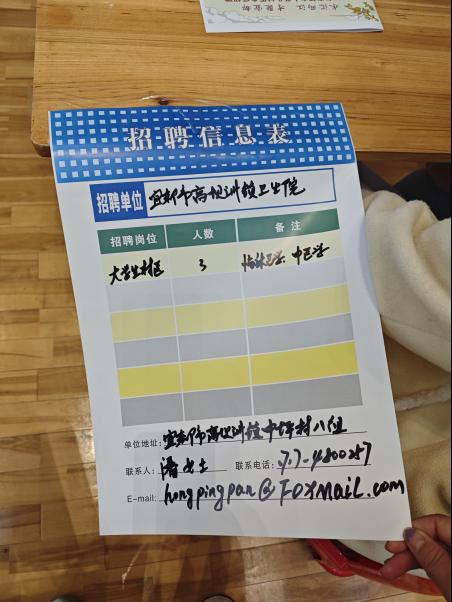 招聘信息表
招聘单位 宜都市高坝洲镇卫生院
招聘岗位 人数 备注
大学生村医 3 临床医学、中医学
单位地址: 宜都市高坝洲镇中坪村八组
联系人: 潘女士 联系电话: 717-4800287
E-mail: hongpingpan@FOXMAiL.com